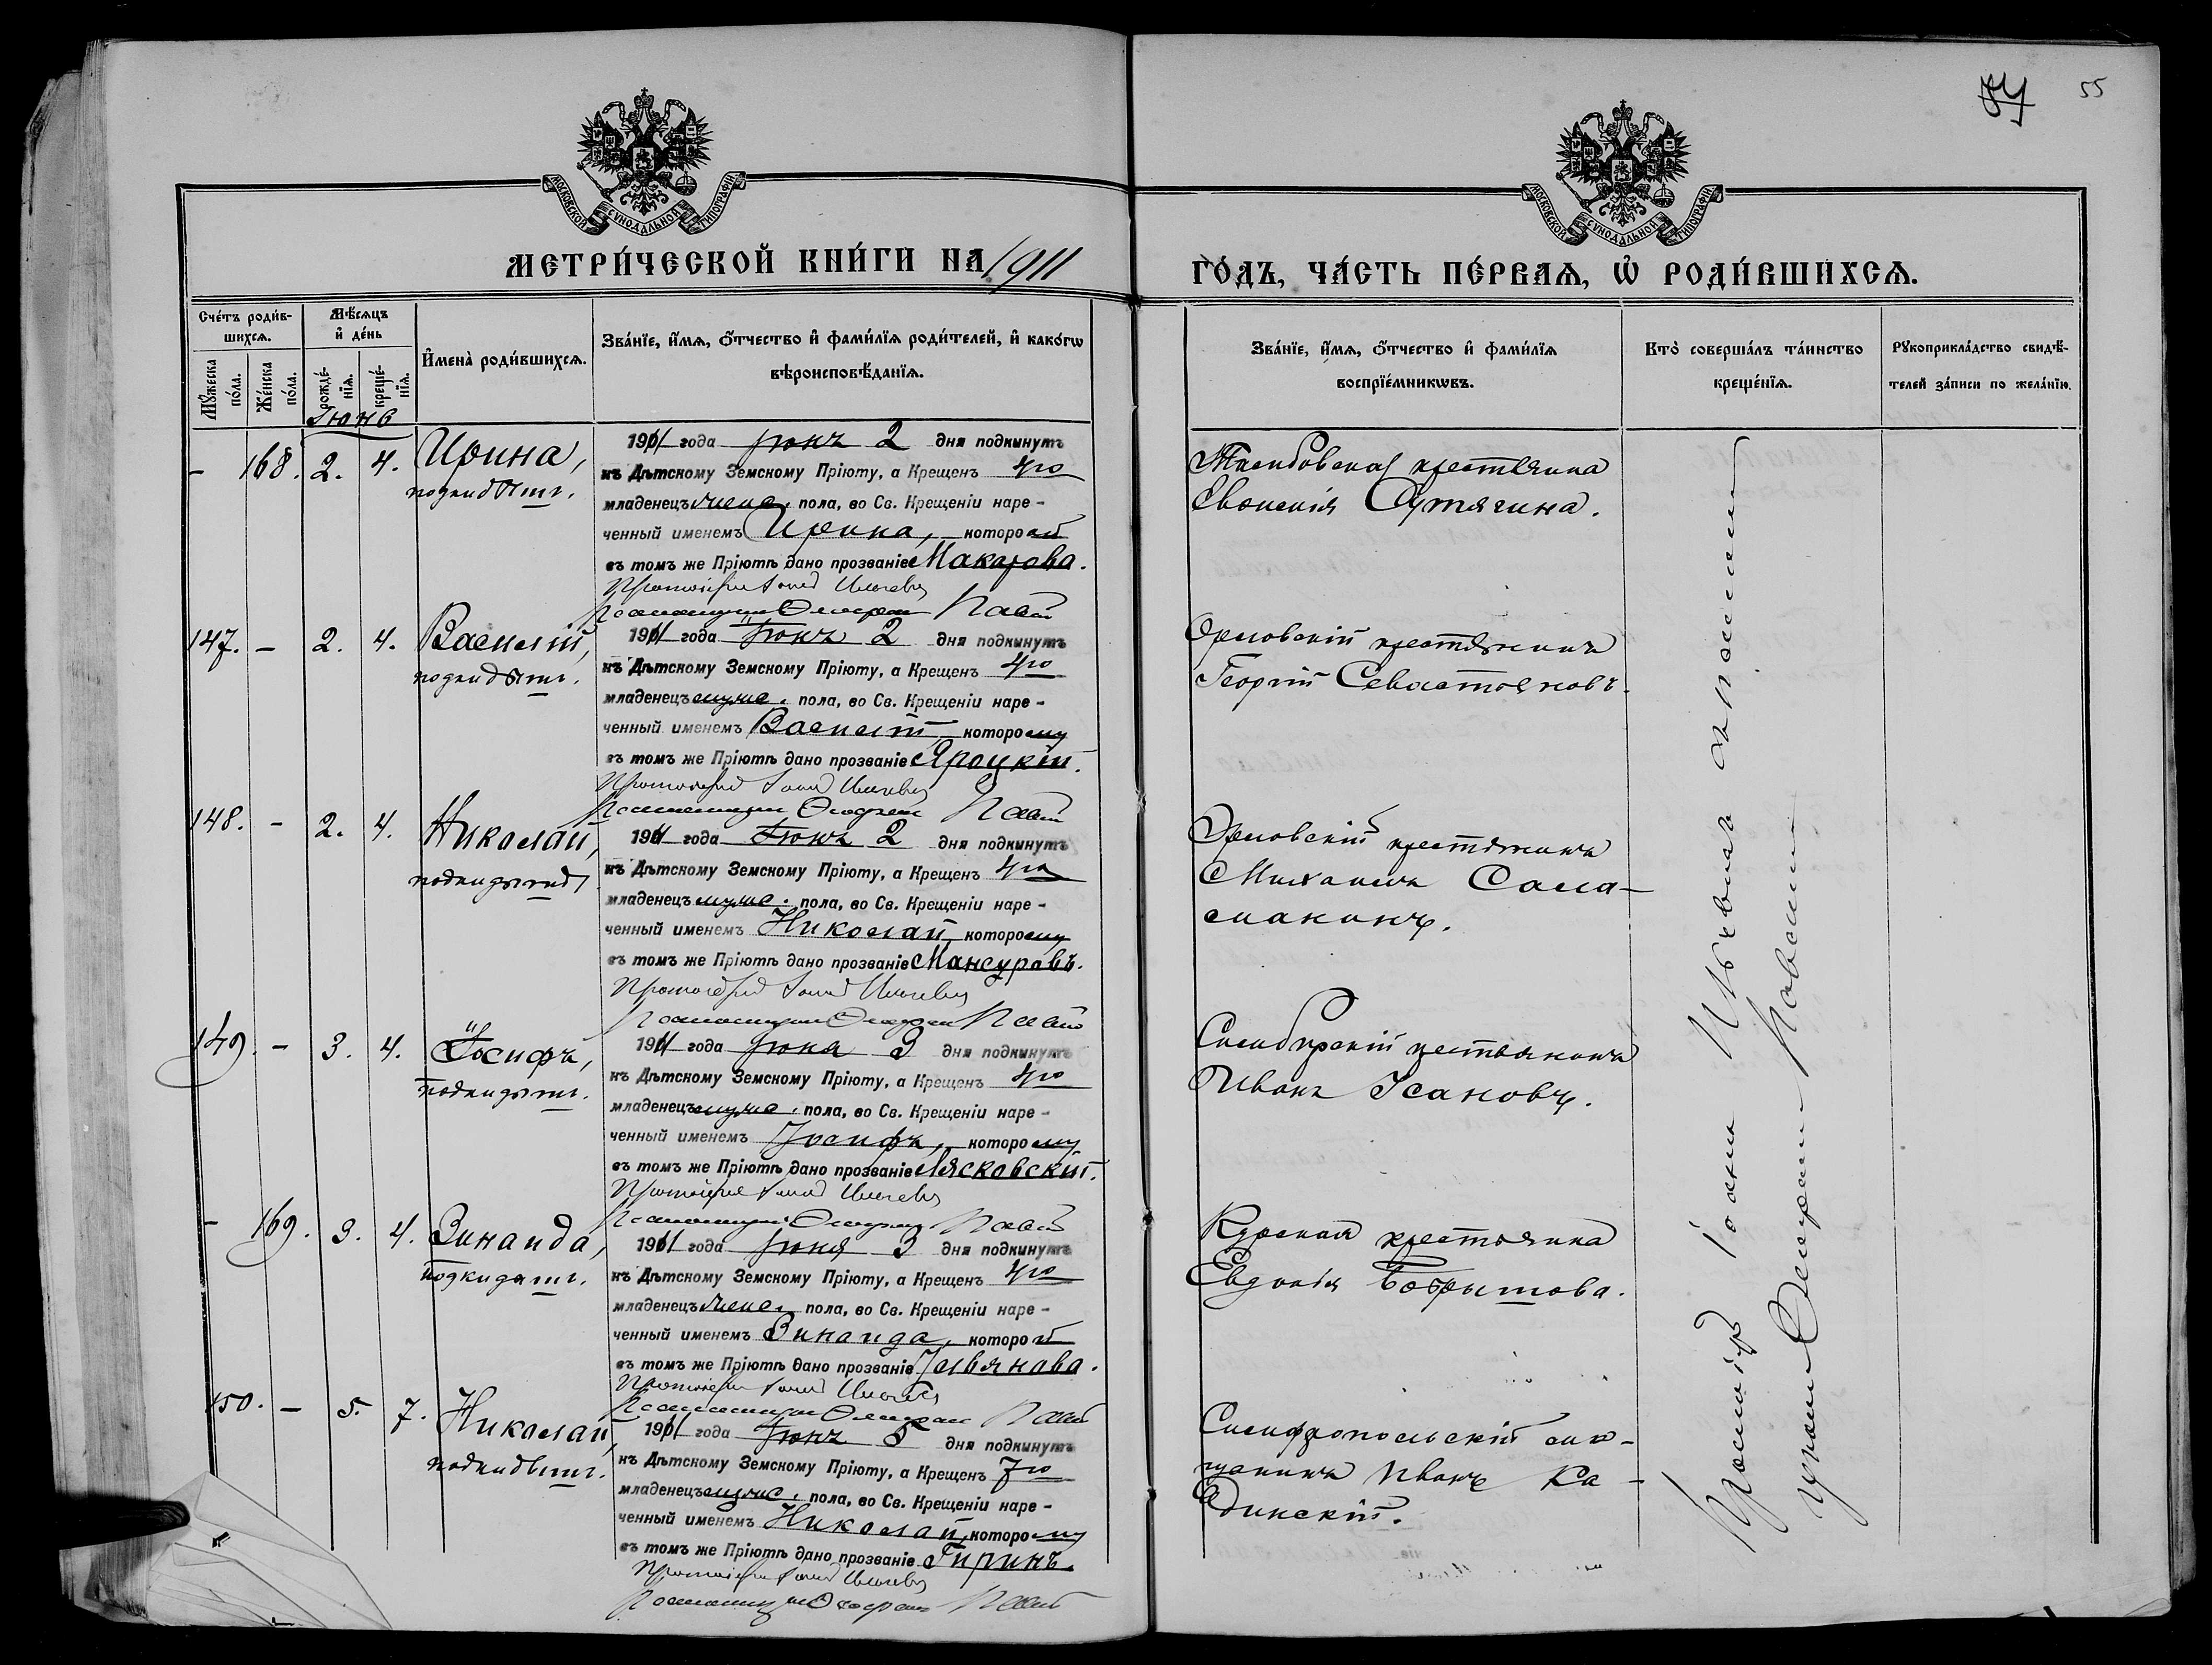 54 55
МОСКОВСКОЙ СѴНОДАЛЬНОЙ ТИПОГРАФІИ
МОСКОВСКОЙ СѴНОДАЛЬНОЙ ТИПОГРАФІИ
МЕТРИ́ЧЕСКОЙ КНИ́ГИ НА 1911
ГО́ДЪ, ЧА́СТЬ ПЕ́РВАЯ, Ѡ҆ РОДИ́ВШИХСЯ.
Сче́тъ роди́в-
шихся.
Мꙋ́жеска по́ла.
Же́нска по́ла.
Мѣ́сяцъ
и҆ де́нь
рожде́-нїя.
креще́-нїя.
И҆мена̀ роди́вшихся.
Зва́нїе, и҆́мя, ѻ҆́тчество и҆ фами́лїя роди́телей, и҆ како́гѡ
вѣроисповѣ́данїя.
Зва́нїе, и҆́мя, ѻ҆́тчество и҆ фами́лїя
воспрїе́мникѡвъ.
Кто̀ соверша́лъ та́инство
креще́нїя.
Рꙋкоприкла́дство свидѣ́-
телей за́писи по жела́нїю.
Іюнь
- 168. 2. 4. Ирина,
подкидышъ.
1911 года Іюнь 2 дня подкинутъ
къ Дѣтскому Земскому Пріюту, а Крещенъ 4го
младенецъ жена. пола, во Св. Крещеніи наре-
ченный именемъ Ирина, которой
въ томъ же Пріютѣ дано прозваніе Макарова.
Протоіерей Іоаннъ
крестьянка
Сутягина.
147. - 2. 4. Василій,
подкидышъ.
1911 года Іюнь 2 дня подкинутъ
къ Дѣтскому Земскому Пріюту, а Крещенъ 4го
младенецъ мужа. пола, во Св. Крещеніи наре-
ченный именемъ Василій, которому
въ томъ же Пріютѣ дано прозваніе Яроцкій.
Протоіерей Іоаннъ
Орловскій крестьянинъ
Георгій Севастьяновъ.
148. - 2. 4. Николай,
подкидышъ
1911 года Іюнь 2 дня подкинутъ
къ Дѣтскому Земскому Пріюту, а Крещенъ 4го
младенецъ мужа. пола, во Св. Крещеніи наре-
ченный именемъ Николай, которому
въ томъ же Пріютѣ дано прозваніе Мансуровъ.
Протоіерей Іоаннъ
Орловскій крестьянинъ
Михаилъ Сала-
маникъ.
149. - 3. 4. Іосифъ,
подкидышъ.
1911 года Іюня 3 дня подкинутъ
къ Дѣтскому Земскому Пріюту, а Крещенъ 4го
младенецъ мужа. пола, во Св. Крещеніи наре-
ченный именемъ Іосифъ, которому
въ томъ же Пріютѣ дано прозваніе Лясковскій.
Протоіерей Іоаннъ
Симбирскій крестьянинъ
Иванъ Усановъ.
- 169. 3. 4. Зинаида,
подкидышъ.
1911 года Іюня 3 дня подкинутъ
къ Дѣтскому Земскому Пріюту, а Крещенъ 4го
младенецъ жена. пола, во Св. Крещеніи наре-
ченный именемъ Зинаида, которой
въ томъ же Пріютѣ дано прозваніе Ульянова.
Протоіерей Іоаннъ
Курская крестьянка
Евдокія Бобрышова.
150. - 5. 7. Николай,
подкидышъ.
1911 года Іюнь 5 дня подкинутъ
къ Дѣтскому Земскому Пріюту, а Крещенъ 7го
младенецъ мужа. пола, во Св. Крещеніи наре-
ченный именемъ Николай, которому
въ томъ же Пріютѣ дано прозваніе Гиринъ.
Протоіерей Іоаннъ
Симферопольскій мѣ-
щанинъ Иванъ Ка-
динскій.
Протоіерей Іоаннъ